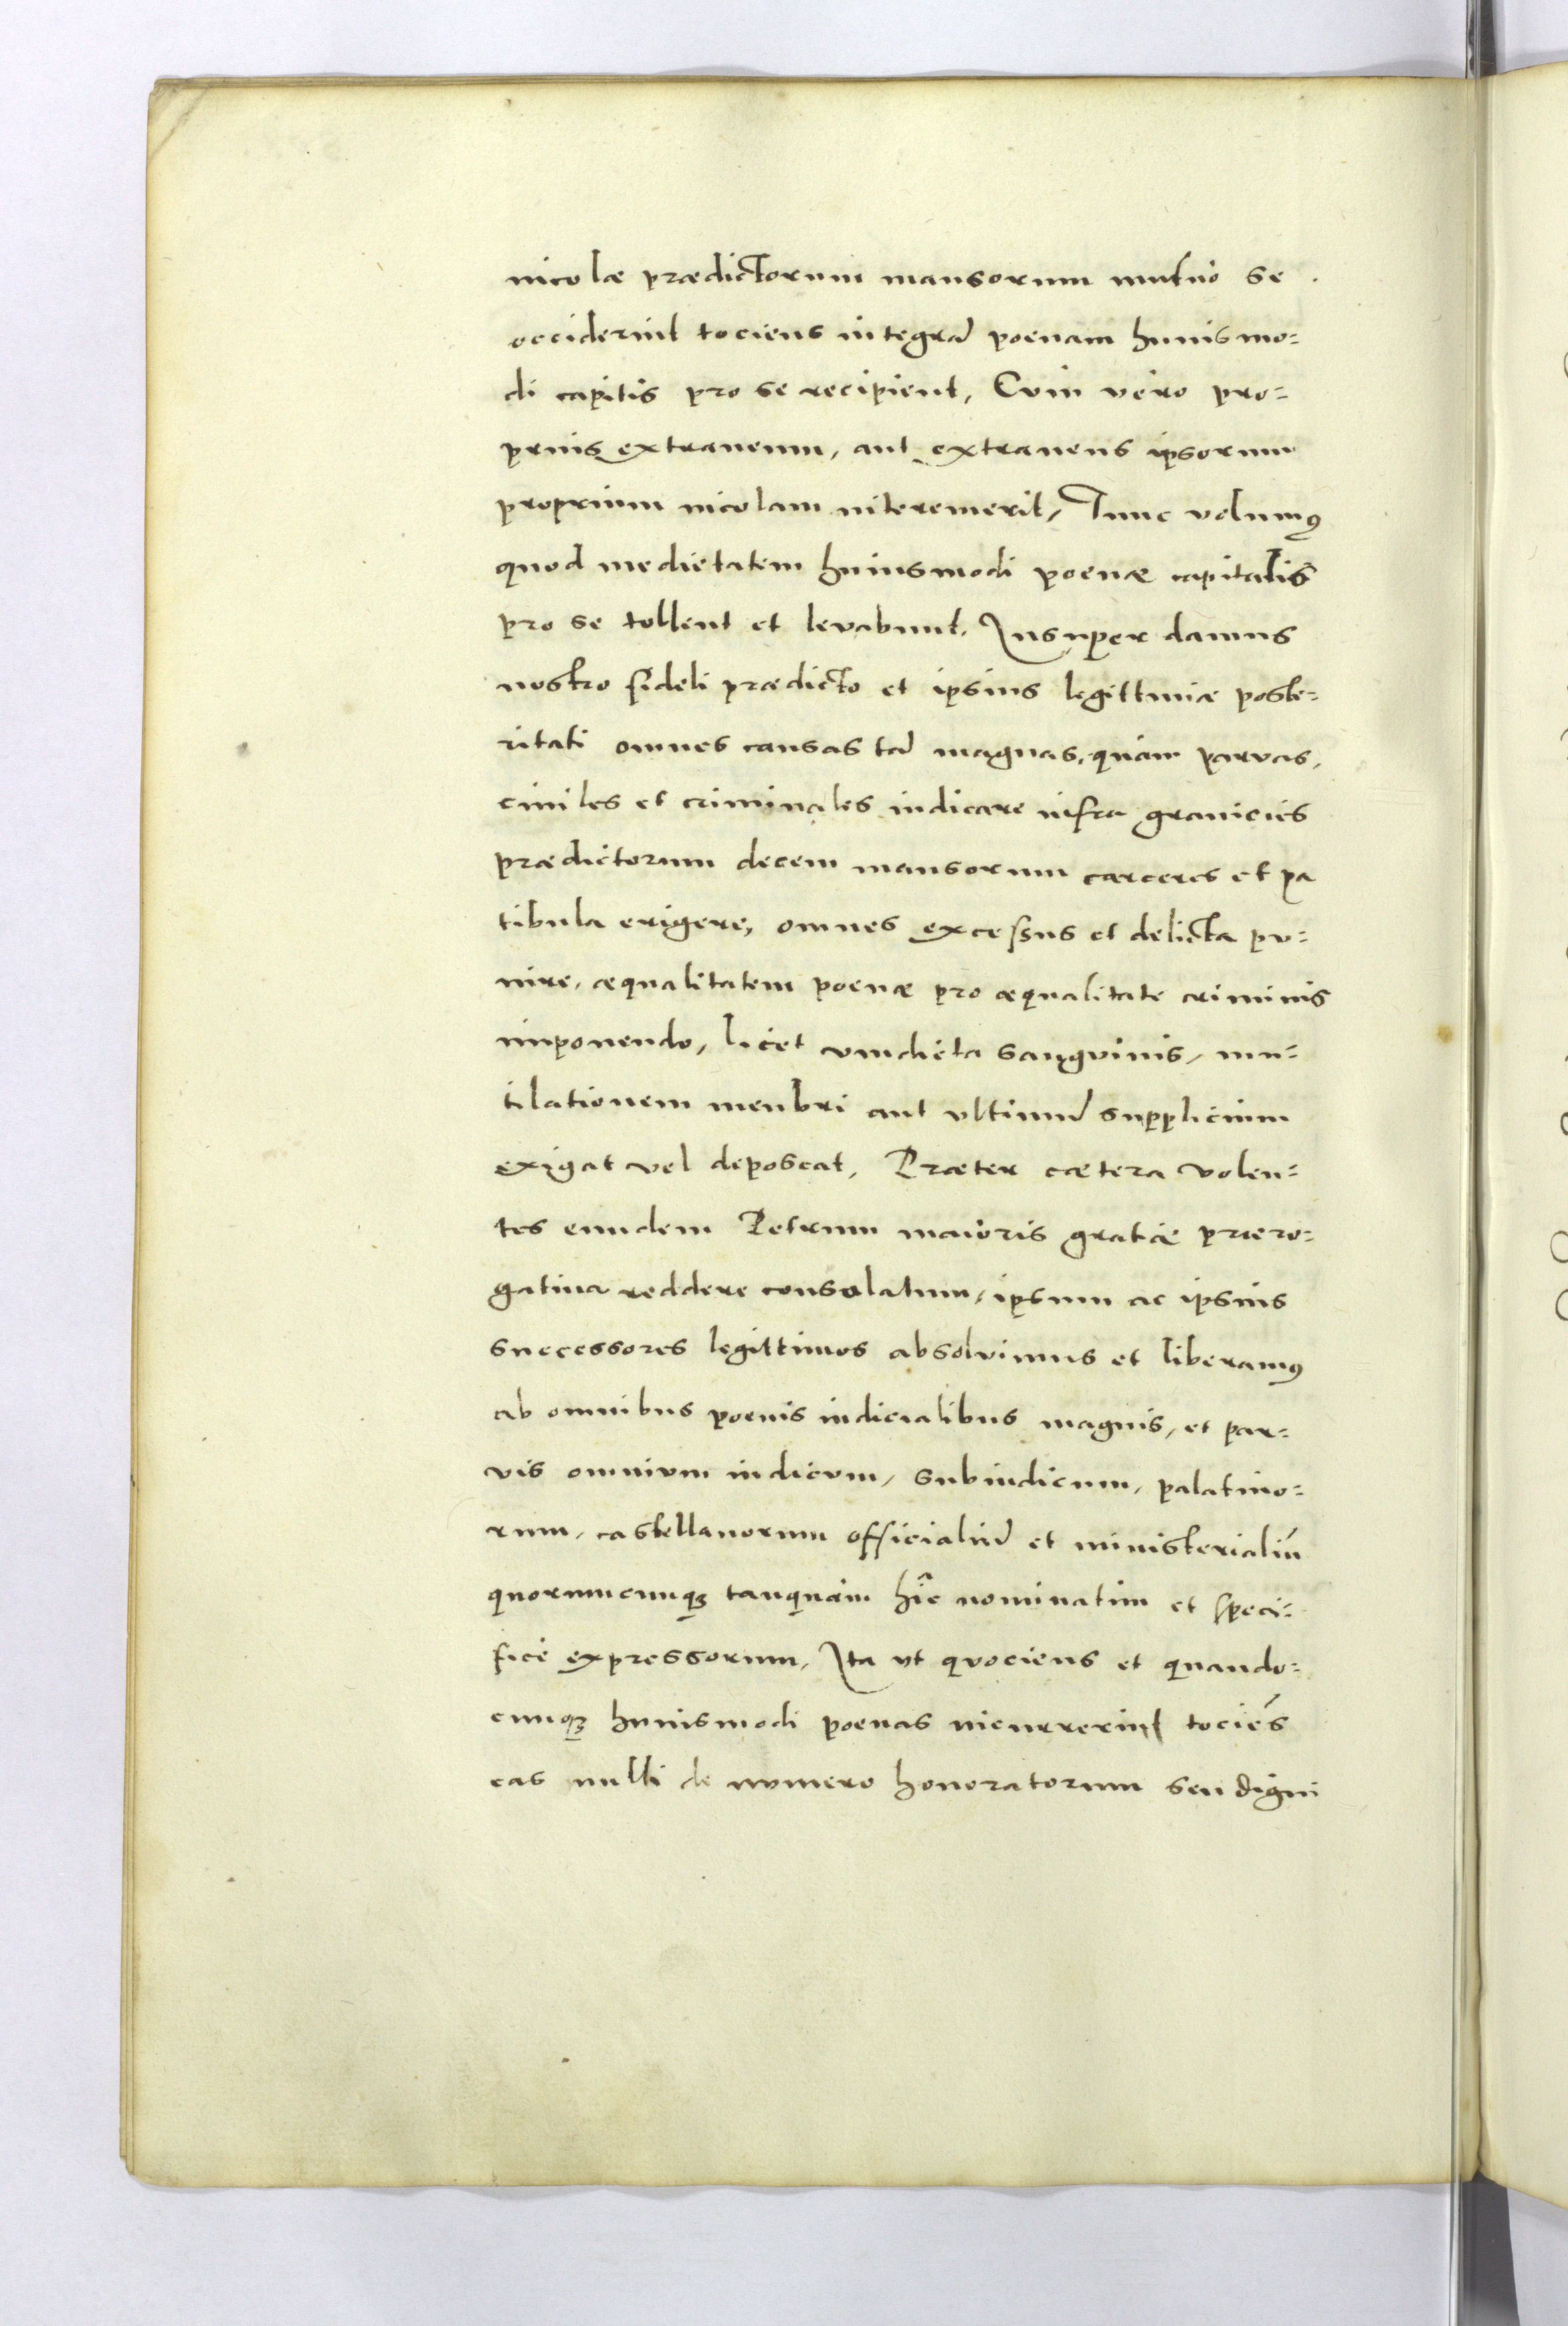 incolæ prædictorum mansorum mutuò se
occiderint tociens integrã poenam huiusmo=
di capitis pro se recipient, Cum vero pro=
prius extraneum, aut extraneus ipsorum
proprium incolam interemerit, Tunc volumꝰ
quod medietatem huiusmodi poenæ capitalis
pro se tollent et levabunt. Insuper damus
nostro fideli prædicto et ipsius legittimæ poste=
ritati omnes causas tã magnas, quàm parvas,
civiles et criminales iudicare infra granicies
prædictorum decem mansorum carceres et pa
tibula erigere, omnes excessus et delicta pu=
nire, æqualitatem poenæ pro æqualitate criminis
imponendo, licet vindicta sangvinis, mu=
tilationem menbri aut vltimũ supplicium
exigat vel deposcat, Præter cætera volen=
tes eundem Petrum maioris gratiæ præro=
gatiua reddere consolatum, ipsum ac ipsius
successores legittimos absolvimus et liberamꝰ
ab omnibus poenis iudicialibus magnis, et par=
vis omnivm iudicvm, subiudicum, palatino=
rum, castellanorum officialiũ et ministerialiũ
quorumcunqꝫ tanquàm hîc nominatim et speci=
ficè expressorum, Ita vt qvociens et quando=
cunqꝫ huiusmodi poenas incurrerint tociẽs
eas nulli de nvmero honoratorum seu digni